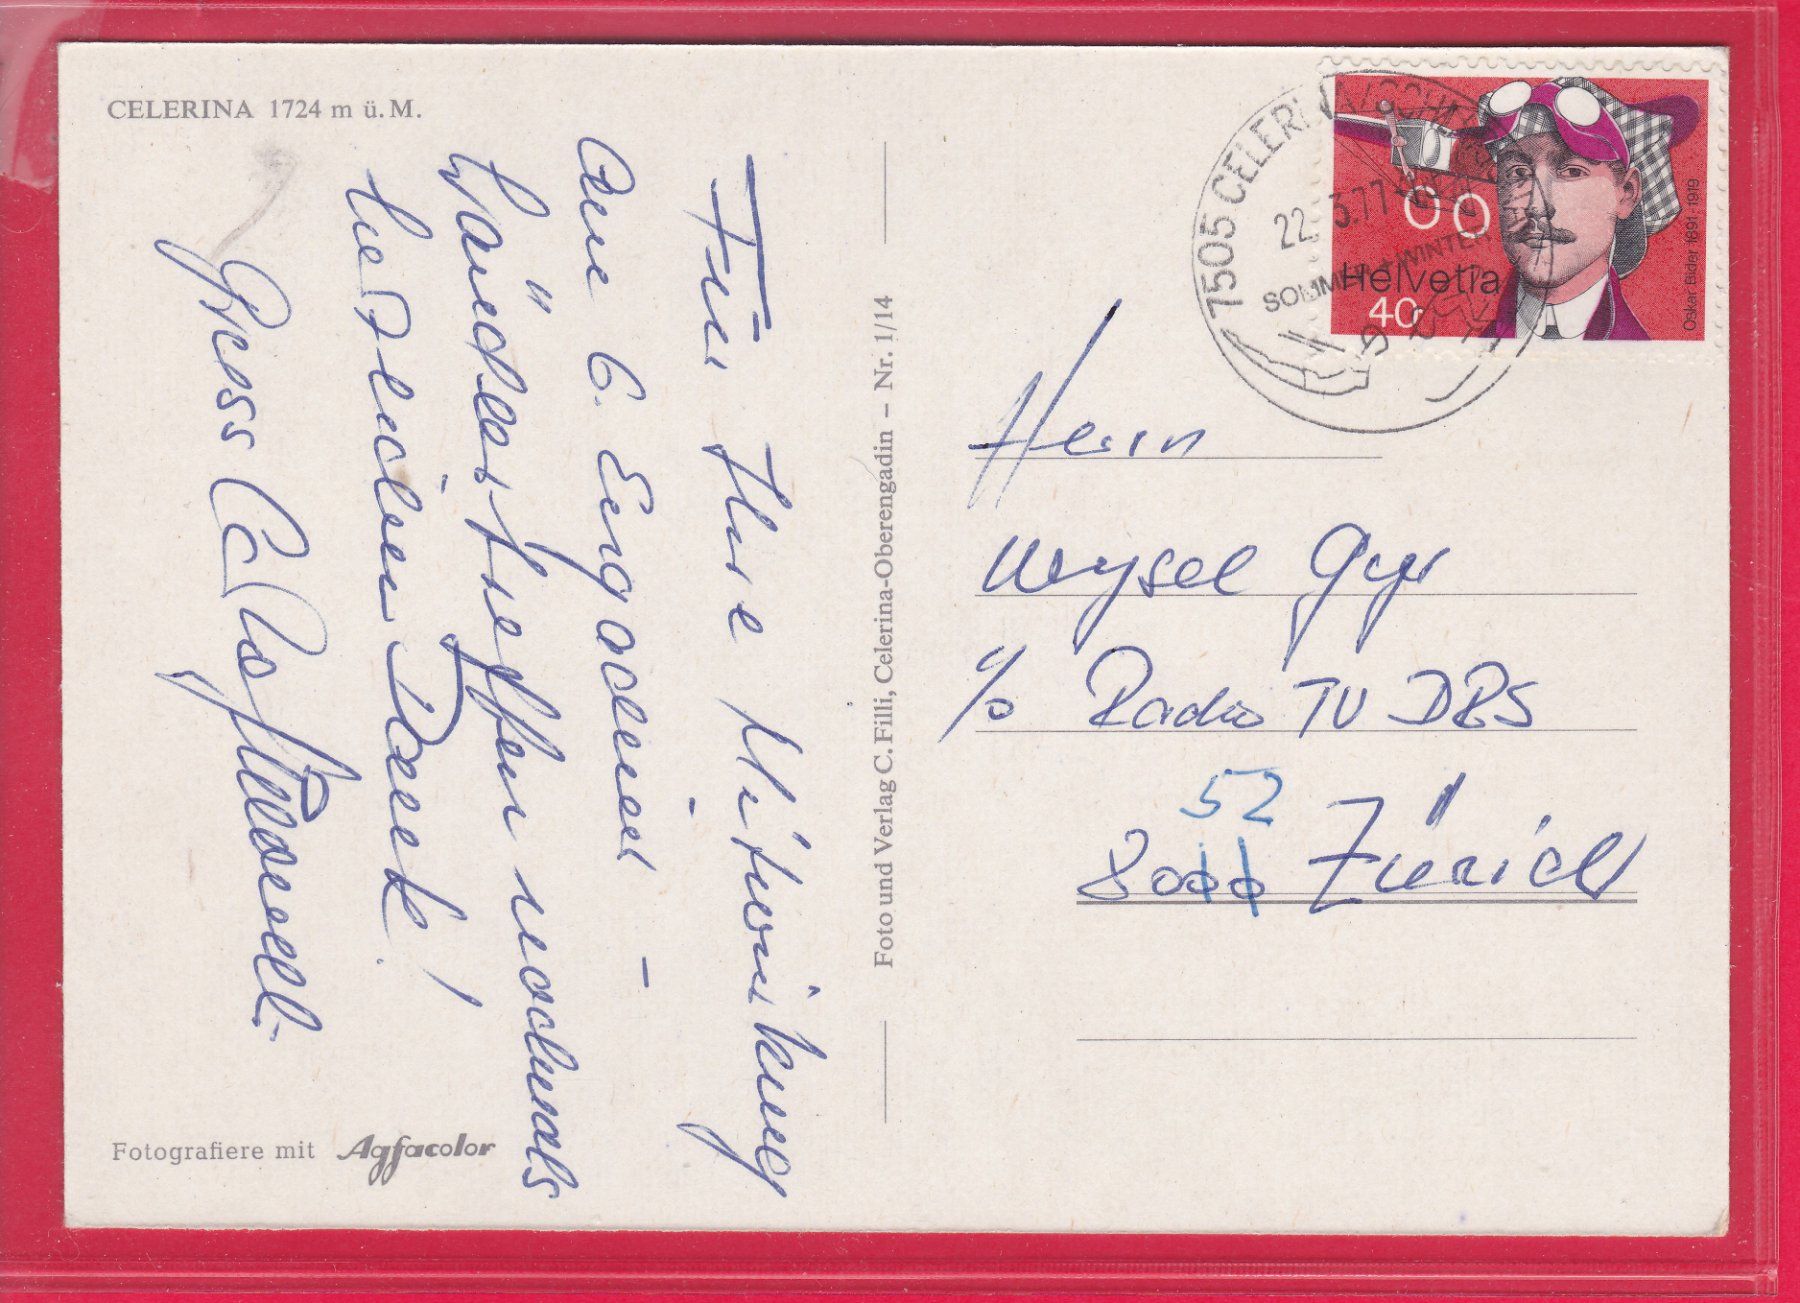 CELERINA 1724 m ü. M.
Für Ihre Mitwirkung
am 6. Engadiner-
Ländlertreffen nochmals
herzlichen Dank!
Gruss
Foto und Verlag C. Filli, Celerina-Oberengadin – Nr. 1/14
Fotografiere mit Agfacolor
7505 CELERINA/SCHLARIGNA
22.3.77
SOMMER + WINTER
Helvetia
40
Oskar Bider 1891-1919
Herrn
Wysel Gyr
c/o Radio TV DRS
52
8000 Zürich